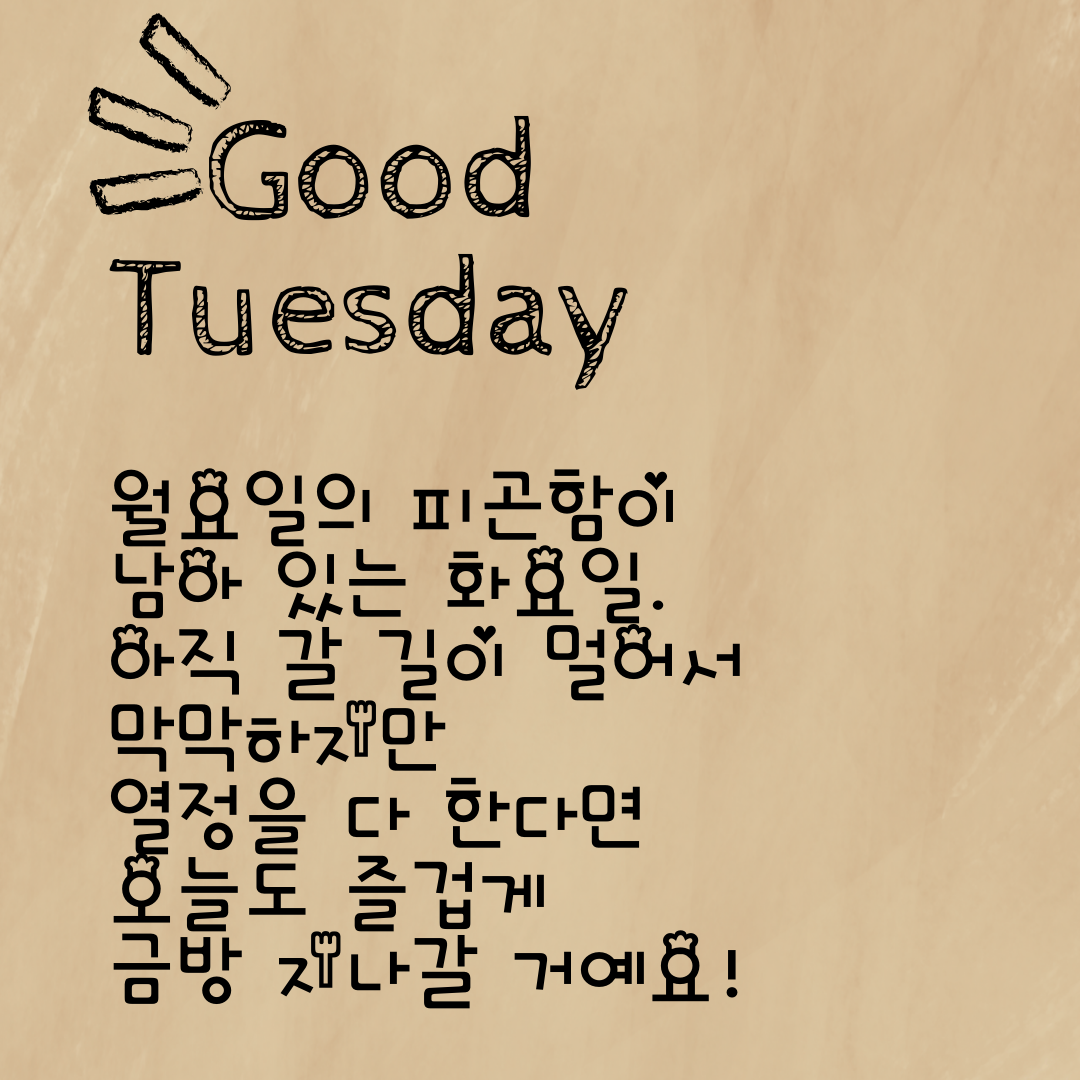 Good
Tuesday
월요일의 피곤함이
남아 있는 화요일.
아직 갈 길이 멀어서
막막하지만
열정을 다 한다면
오늘도 즐겁게
금방 지나갈 거예요!